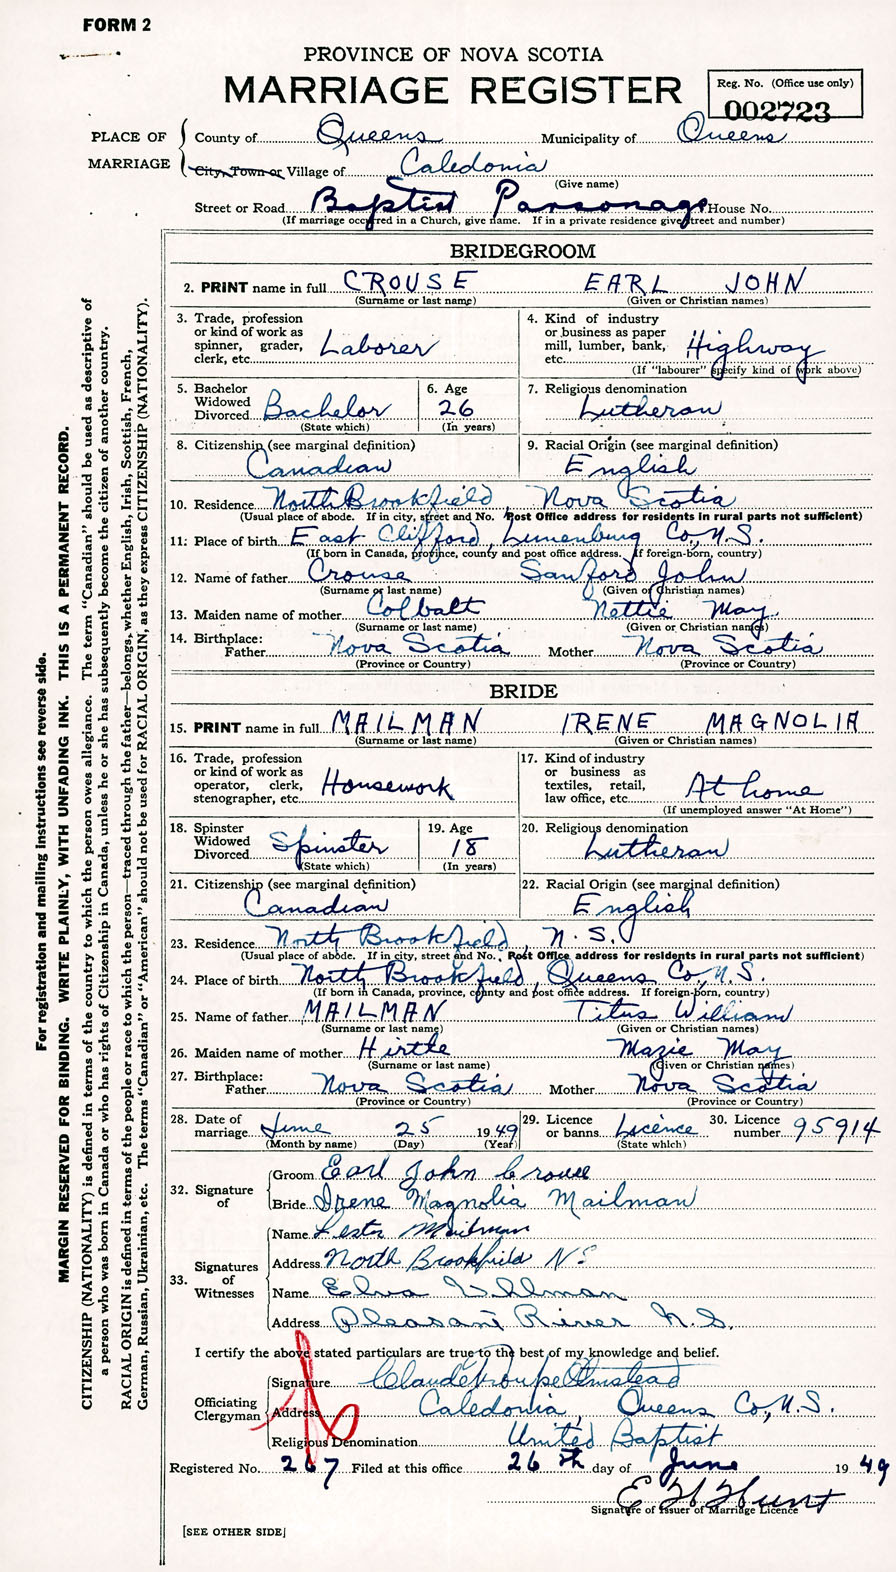 FORM 2
PROVINCE OF NOVA SCOTIA
MARRIAGE REGISTER
Reg. No. (Office use only)
002723
PLACE OF MARRIAGE
County of Queens Municipality of Queens
City, Town or Village of Caledonia
(Give name)
Street or Road Baptist Parsonage House No.
(If marriage occurred in a Church, give name. If in a private residence give street and number)
BRIDEGROOM
2. PRINT name in full CROUSE EARL JOHN
(Surname or last name) (Given or Christian names)
3. Trade, profession or kind of work as spinner, grader, clerk, etc. Laborer
4. Kind of industry or business as paper mill, lumber, bank, etc. Highway
(If "labourer" specify kind of work above)
5. Bachelor Widowed Divorced Bachelor
(State which)
6. Age 26
(In years)
7. Religious denomination Lutheran
8. Citizenship (see marginal definition) Canadian
9. Racial Origin (see marginal definition) English
10. Residence North Brookfield Nova Scotia
(Usual place of abode. If in city, street and No. Post Office address for residents in rural parts not sufficient)
11. Place of birth East Clifford, Lunenburg Co., N.S.
(If born in Canada, province, county and post office address. If foreign-born, country)
12. Name of father Crouse Sanford John
(Surname or last name) (Given or Christian names)
13. Maiden name of mother Colbalt Nettie May
(Surname or last name) (Given or Christian names)
14. Birthplace:
Father Nova Scotia Mother Nova Scotia
(Province or Country) (Province or Country)
BRIDE
15. PRINT name in full MAILMAN IRENE MAGNOLIA
(Surname or last name) (Given or Christian names)
16. Trade, profession or kind of work as operator, clerk, stenographer, etc. Housework
17. Kind of industry or business as textiles, retail, law office, etc. At home
(If unemployed answer "At Home")
18. Spinster Widowed Divorced Spinster
(State which)
19. Age 18
(In years)
20. Religious denomination Lutheran
21. Citizenship (see marginal definition) Canadian
22. Racial Origin (see marginal definition) English
23. Residence North Brookfield, N.S.
(Usual place of abode. If in city, street and No. Post Office address for residents in rural parts not sufficient)
24. Place of birth North Brookfield, Queens Co., N.S.
(If born in Canada, province, county and post office address. If foreign-born, country)
25. Name of father MAILMAN Titus William
(Surname or last name) (Given or Christian names)
26. Maiden name of mother Hirtle Mazie May
(Surname or last name) (Given or Christian names)
27. Birthplace:
Father Nova Scotia Mother Nova Scotia
(Province or Country) (Province or Country)
28. Date of marriage June 25 1949
(Month by name) (Day) (Year)
29. Licence or banns Licence
(State which)
30. Licence number 95914
32. Signature of
Groom Earl John Crouse
Bride Irene Magnolia Mailman
33. Signatures of Witnesses
Name Lester Mailman
Address North Brookfield NS
Name Elva
Address Pleasant River N.S.
I certify the above stated particulars are true to the best of my knowledge and belief.
Officiating Clergyman
Signature Claude Olmstead
Address Caledonia, Queens Co., N.S.
Religious Denomination United Baptist
Registered No. 267 Filed at this office 26th day of June 1949
E H Hunt
Signature of Issuer of Marriage Licence
[SEE OTHER SIDE]
For registration and mailing instructions see reverse side.
MARGIN RESERVED FOR BINDING. WRITE PLAINLY, WITH UNFADING INK. THIS IS A PERMANENT RECORD.
CITIZENSHIP (NATIONALITY) is defined in terms of the country to which the person owes allegiance. The term "Canadian" should be used as descriptive of
a person who was born in Canada or who has rights of Citizenship in Canada, unless he or she has subsequently become the citizen of another country.
RACIAL ORIGIN is defined in terms of the people or race to which the person—traced through the father—belongs, whether English, Irish, Scottish, French,
German, Russian, Ukrainian, etc. The terms "Canadian" or "American" should not be used for RACIAL ORIGIN, as they express CITIZENSHIP (NATIONALITY).